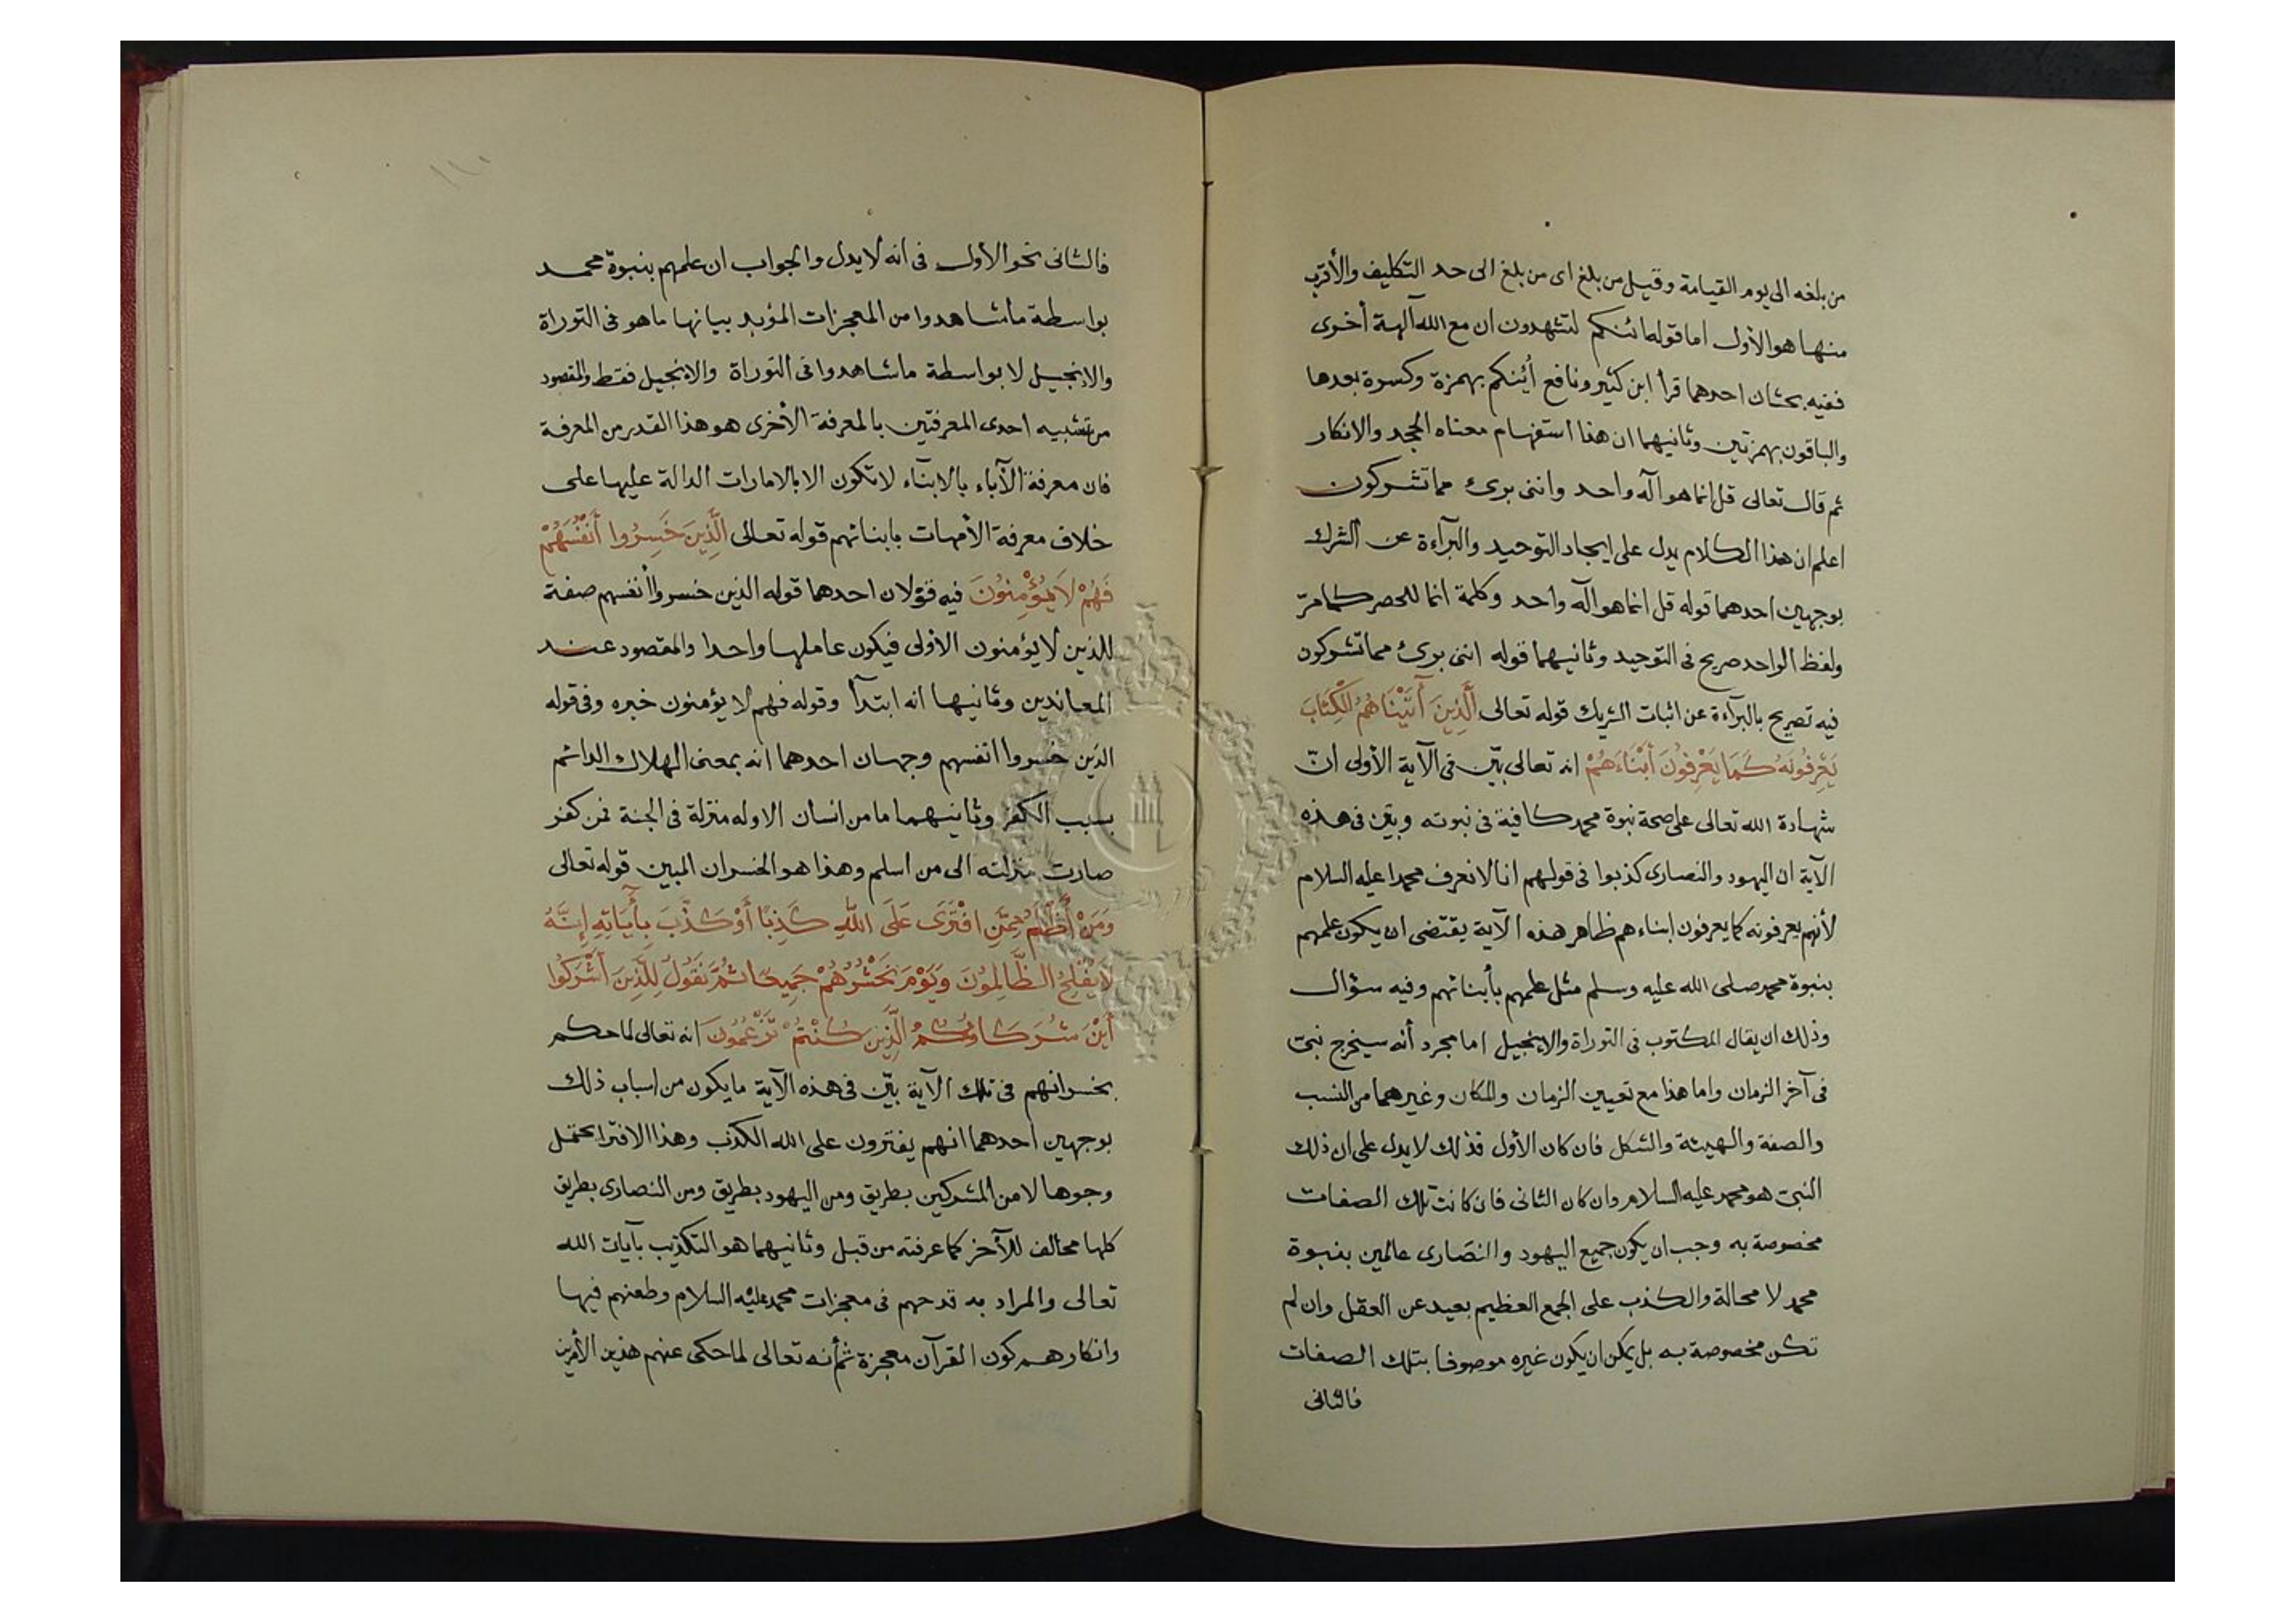 من بلغه الى يوم القيامة وقيل من بلغ اى من بلغ الى حد التكليف والأقرب
منها هو الأول اما قوله ائنكم لتشهدون ان مع الله آلهة أخرى
ففيه بحثان احدهما قرأ ابن كثير ونافع أينكم بهمزة وكسرة بعدها
والباقون بهمزتين وثانيهما ان هذا استفهام معناه الجحد والانكار
ثم قال تعالى قل انما هو آله واحد واننى برئ مما تشركون
اعلم ان هذا الكلام يدل على ايجاد التوحيد والبرآءة عن الشرك
بوجهين احدهما قوله قل انما هو آله واحد وكلمة انما للحصر كما مرّ
ولفظ الواحد صريح فى التوحيد وثانيهما قوله اننى برئ مما تشركون
فيه تصريح بالبرآءة عن اثبات الشريك قوله تعالى الَّذِينَ أٓتَيْنَاهُمُ الْكِتَابَ
يَعْرِفُونَهُ كَمَا يَعْرِفُونَ أَبْنَاءَهُمْ انه تعالى بيّن فى الآية الأولى انّ
شهادة الله تعالى على صحة نبوة محمد كافية فى نبوته وبيّن فى هذه
الآية ان اليهود والنصارى كذبوا فى قولهم انا لا نعرف محمدا عليه السلام
لأنهم يعرفونه كما يعرفون ابناءهم ظاهر هذه الآية يقتضى ان يكون علمهم
بنبوة محمد صلى الله عليه وسلم مثل علمهم بأبنائهم وفيه سؤال
وذلك ان يقال المكتوب فى التوراة والانجيل اما مجرد أنه سيخرج نبىّ
فى آخر الزمان واما هذا مع تعيين الزمان والمكان وغيرهما من النسب
والصفة والهيئة والشكل فان كان الأول فذلك لا يدل على ان ذلك
النبىّ هو محمد عليه السلام وان كان الثانى فان كانت تلك الصفات
مخصوصة به وجب ان يكون جميع اليهود والنصارى عالمين بنبوة
محمد لا محالة والكذب على الجمع العظيم بعيد عن العقل وان لم
تكن مخصوصة به بل يمكن ان يكون غيره موصوفا بتلك الصفات
فالثانى
١١٠
فالثانى نحو الأول فى انه لا يدل والجواب ان علمهم بنبوة محمد
بواسطة ما شاهدوا من المعجزات المؤيد بيانها ما هو فى التوراة
والانجيل لا بواسطة ما شاهدوا فى التوراة والانجيل فقط والمقصود
من تشبيه احدى المعرفتين بالمعرفة الأخرى هو هذا القدر من المعرفة
فان معرفة الآباء بالابنآء لا تكون الا بالامارات الدالة عليها على
خلاف معرفة الأمهات بابنائهم قوله تعالى الَّذِينَ خَسِرُوا أَنْفُسَهُمْ
فَهُمْ لَا يُؤْمِنُونَ فيه قولان احدهما قوله الذين خسروا أنفسهم صفة
للذين لا يؤمنون الأولى فيكون عاملها واحدا والمقصود عند
المعاندين وثانيها انه ابتدآ وقوله فهم لا يؤمنون خبره وفى قوله
الذين خسروا انفسهم وجهان احدهما انه بمعنى الهلاك الدائم
بسبب الكفر وثانيهما ما من انسان الا وله منزلة فى الجنة فمن كفر
صارت منزلته الى من اسلم وهذا هو الخسران المبين قوله تعالى
وَمَنْ أَظْلَمُ مِمَّنِ افْتَرَى عَلَى اللّهِ كَذِبًا أَوْ كَذَّبَ بِأٓيَاتِهِ إِنَّهُ
لَا يُفْلِحُ الظَّالِمُونَ وَيَوْمَ نَحْشُرُهُمْ جَمِيعًا ثُمَّ نَقُولُ لِلَّذِينَ أَشْرَكُوا
أَيْنَ شُرَكَاؤُكُمُ الَّذِينَ كُنْتُمْ تَزْعُمُونَ انه تعالى لما حكم
بخسرانهم فى تلك الآية بيّن فى هذه الآية ما يكون من اسباب ذلك
بوجهين احدهما انهم يفترون على الله الكذب وهذا الافترا يحتمل
وجوها لا من المشركين بطريق ومن اليهود بطريق ومن النصارى بطريق
كلها مخالف للآخر كما عرفته من قبل وثانيهما هو التكذيب بآيات الله
تعالى والمراد به قدحهم فى معجزات محمد عليه السلام وطعنهم فيها
وانكارهم كون القرآن معجزة ثم أنه تعالى لما حكى عنهم هذين الأمرين